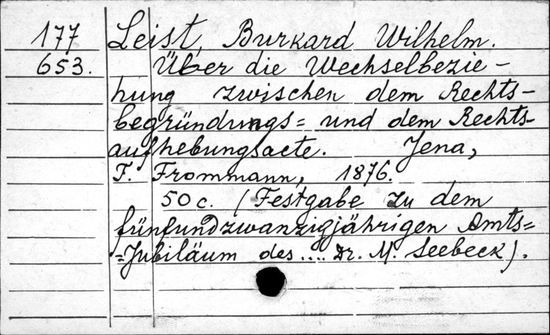 177 Leist, Burkard Wilhelm.
653. Über die Wechselbezie-
hung zwischen dem Rechts-
begründungs= und dem Rechts-
aufhebungsacte. Jena,
F. Frommann, 1876.
50 c. (Festgabe zu dem
fünfundzwanzigjährigen Amts=
=Jubiläum des .... Dr. M. Seebeck).